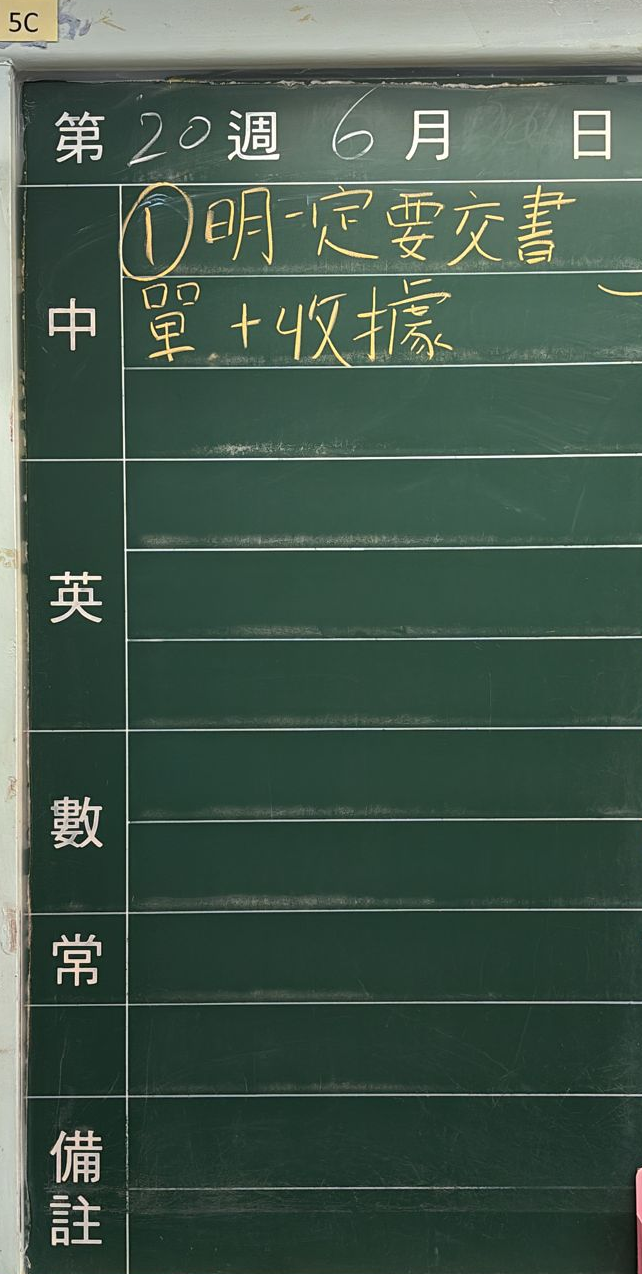 5C
第20週 6月 日
中
①明一定要交書
單+收據
英
數
常
備
註